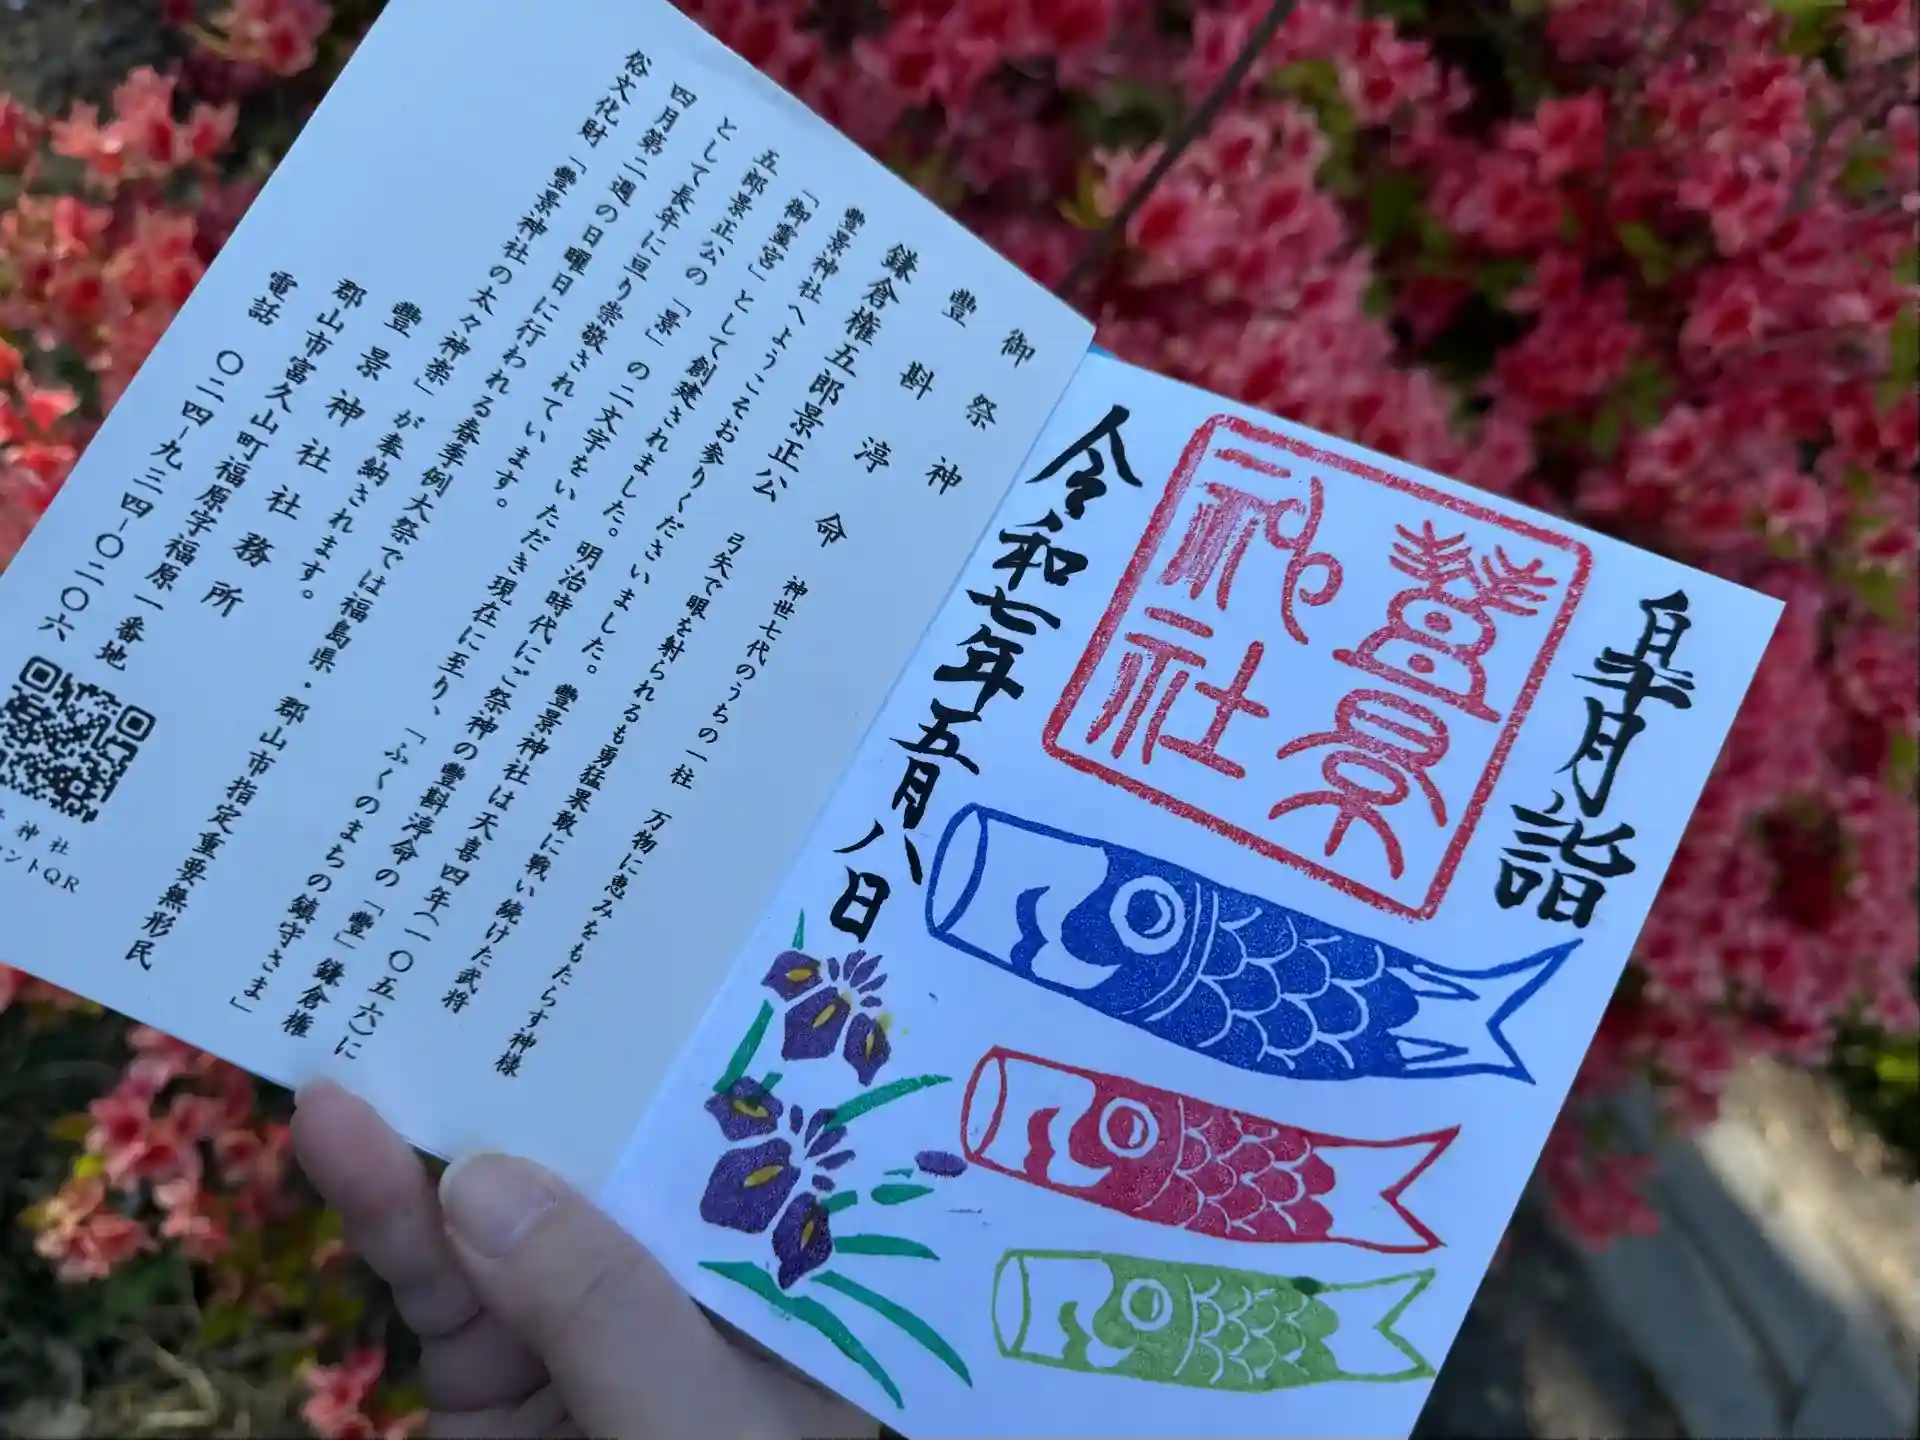 皐月詣
豊景
神社
令和七年五月八日
御祭神
豐斟渟命　神世七代のうちの一柱　万物に恵みをもたらす神様
鎌倉権五郎景正公　弓矢で眼を射られるも勇猛果敢に戦い続けた武将
豐景神社へようこそお参りくださいました。豐景神社は天喜四年(一〇五六)に
「御霊宮」として創建されました。明治時代にご祭神の豐斟渟命の「豐」鎌倉権
五郎景正公の「景」の二文字をいただき現在に至り、「ふくのまちの鎮守さま」
として長年に亘り崇敬されています。
四月第二週の日曜日に行われる春季例大祭では福島県・郡山市指定重要無形民
俗文化財「豐景神社の太々神楽」が奉納されます。
豐景神社社務所
郡山市富久山町福原字福原一番地
電話　〇二四-九三四-〇二〇六
神社
ントQR